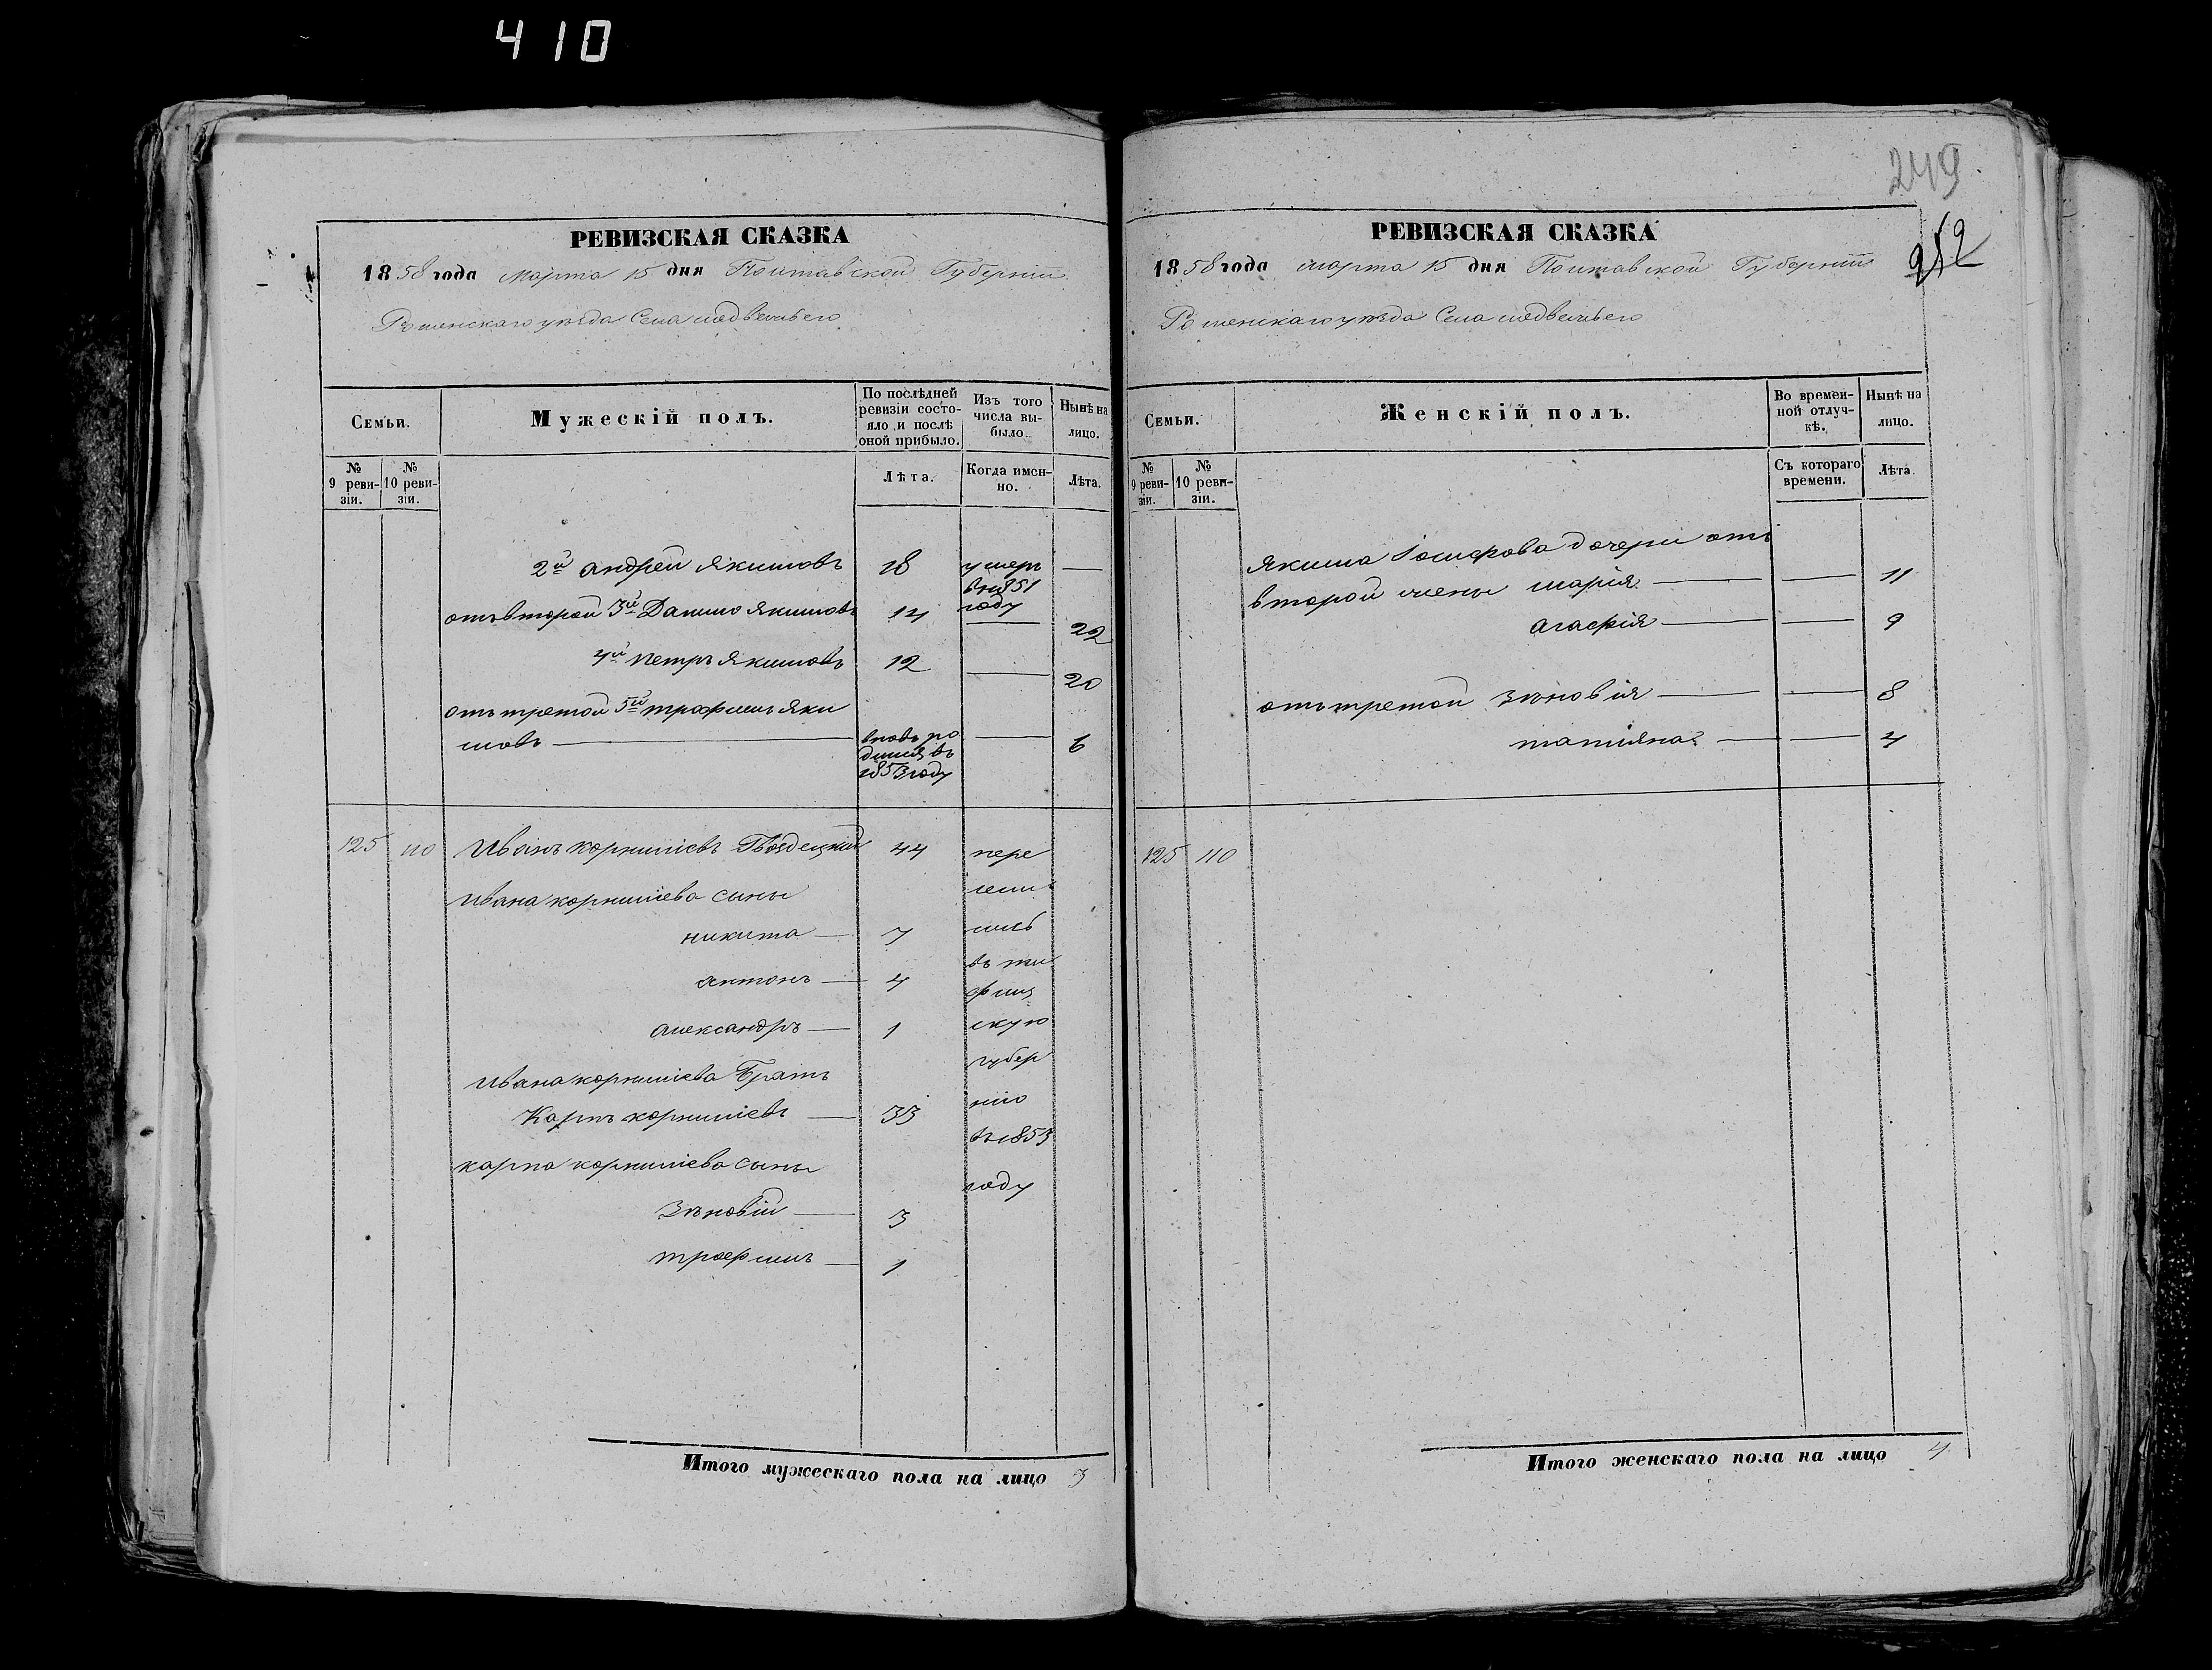 410
249
252
РЕВИЗСКАЯ СКАЗКА
1858 года марта 15 дня Полтавской Губерніи
Роменскаго уѣзда Села медвежьего
Семьи.
Мужескій полъ.
По послѣдней ревизіи состояло и послѣ оной прибыло.
Изъ того числа выбыло.
Нынѣ на лицо.
№ 9 ревизіи.
№ 10 ревизіи.
Лѣта.
Когда именно.
Лѣта.
2й андрей Якимовъ 18 умеръ в 1851 году —
отъ второй 3й Данило Якимовъ 14 — 22
4й петръ Якимовъ 12 — 20
отъ третой 5й трофимъ Яки
мовъ — вновь родился въ 1853 году — 6
125 110 Иванъ корниліевъ Гвоздецкій 44
Ивана корниліева сыны
никита — 7
антонъ — 4
александръ — 1
Ивана корниліева Братъ
Карпъ корниліевъ — 33
карпа корниліева сыны
Зѣновій — 3
трофимъ — 1
пере
сели
лись
въ ти
флиз
скую
губер
нію
въ 1853
году
Итого мужескаго пола на лицо 3
РЕВИЗСКАЯ СКАЗКА
1858 года марта 15 дня Полтавской Губерніи
Роменскаго уѣзда Села медвежьего
Семьи.
Женскій полъ.
Во временной отлучкѣ.
Нынѣ на лицо.
№ 9 ревизіи.
№ 10 ревизіи.
Съ котораго времени.
Лѣта.
Якима Іосифова дочери отъ
второй жены марія — — 11
агафія — — 9
отъ третой зѣновія — — 8
татіяна — — 4
125 110
Итого женскаго пола на лицо 4